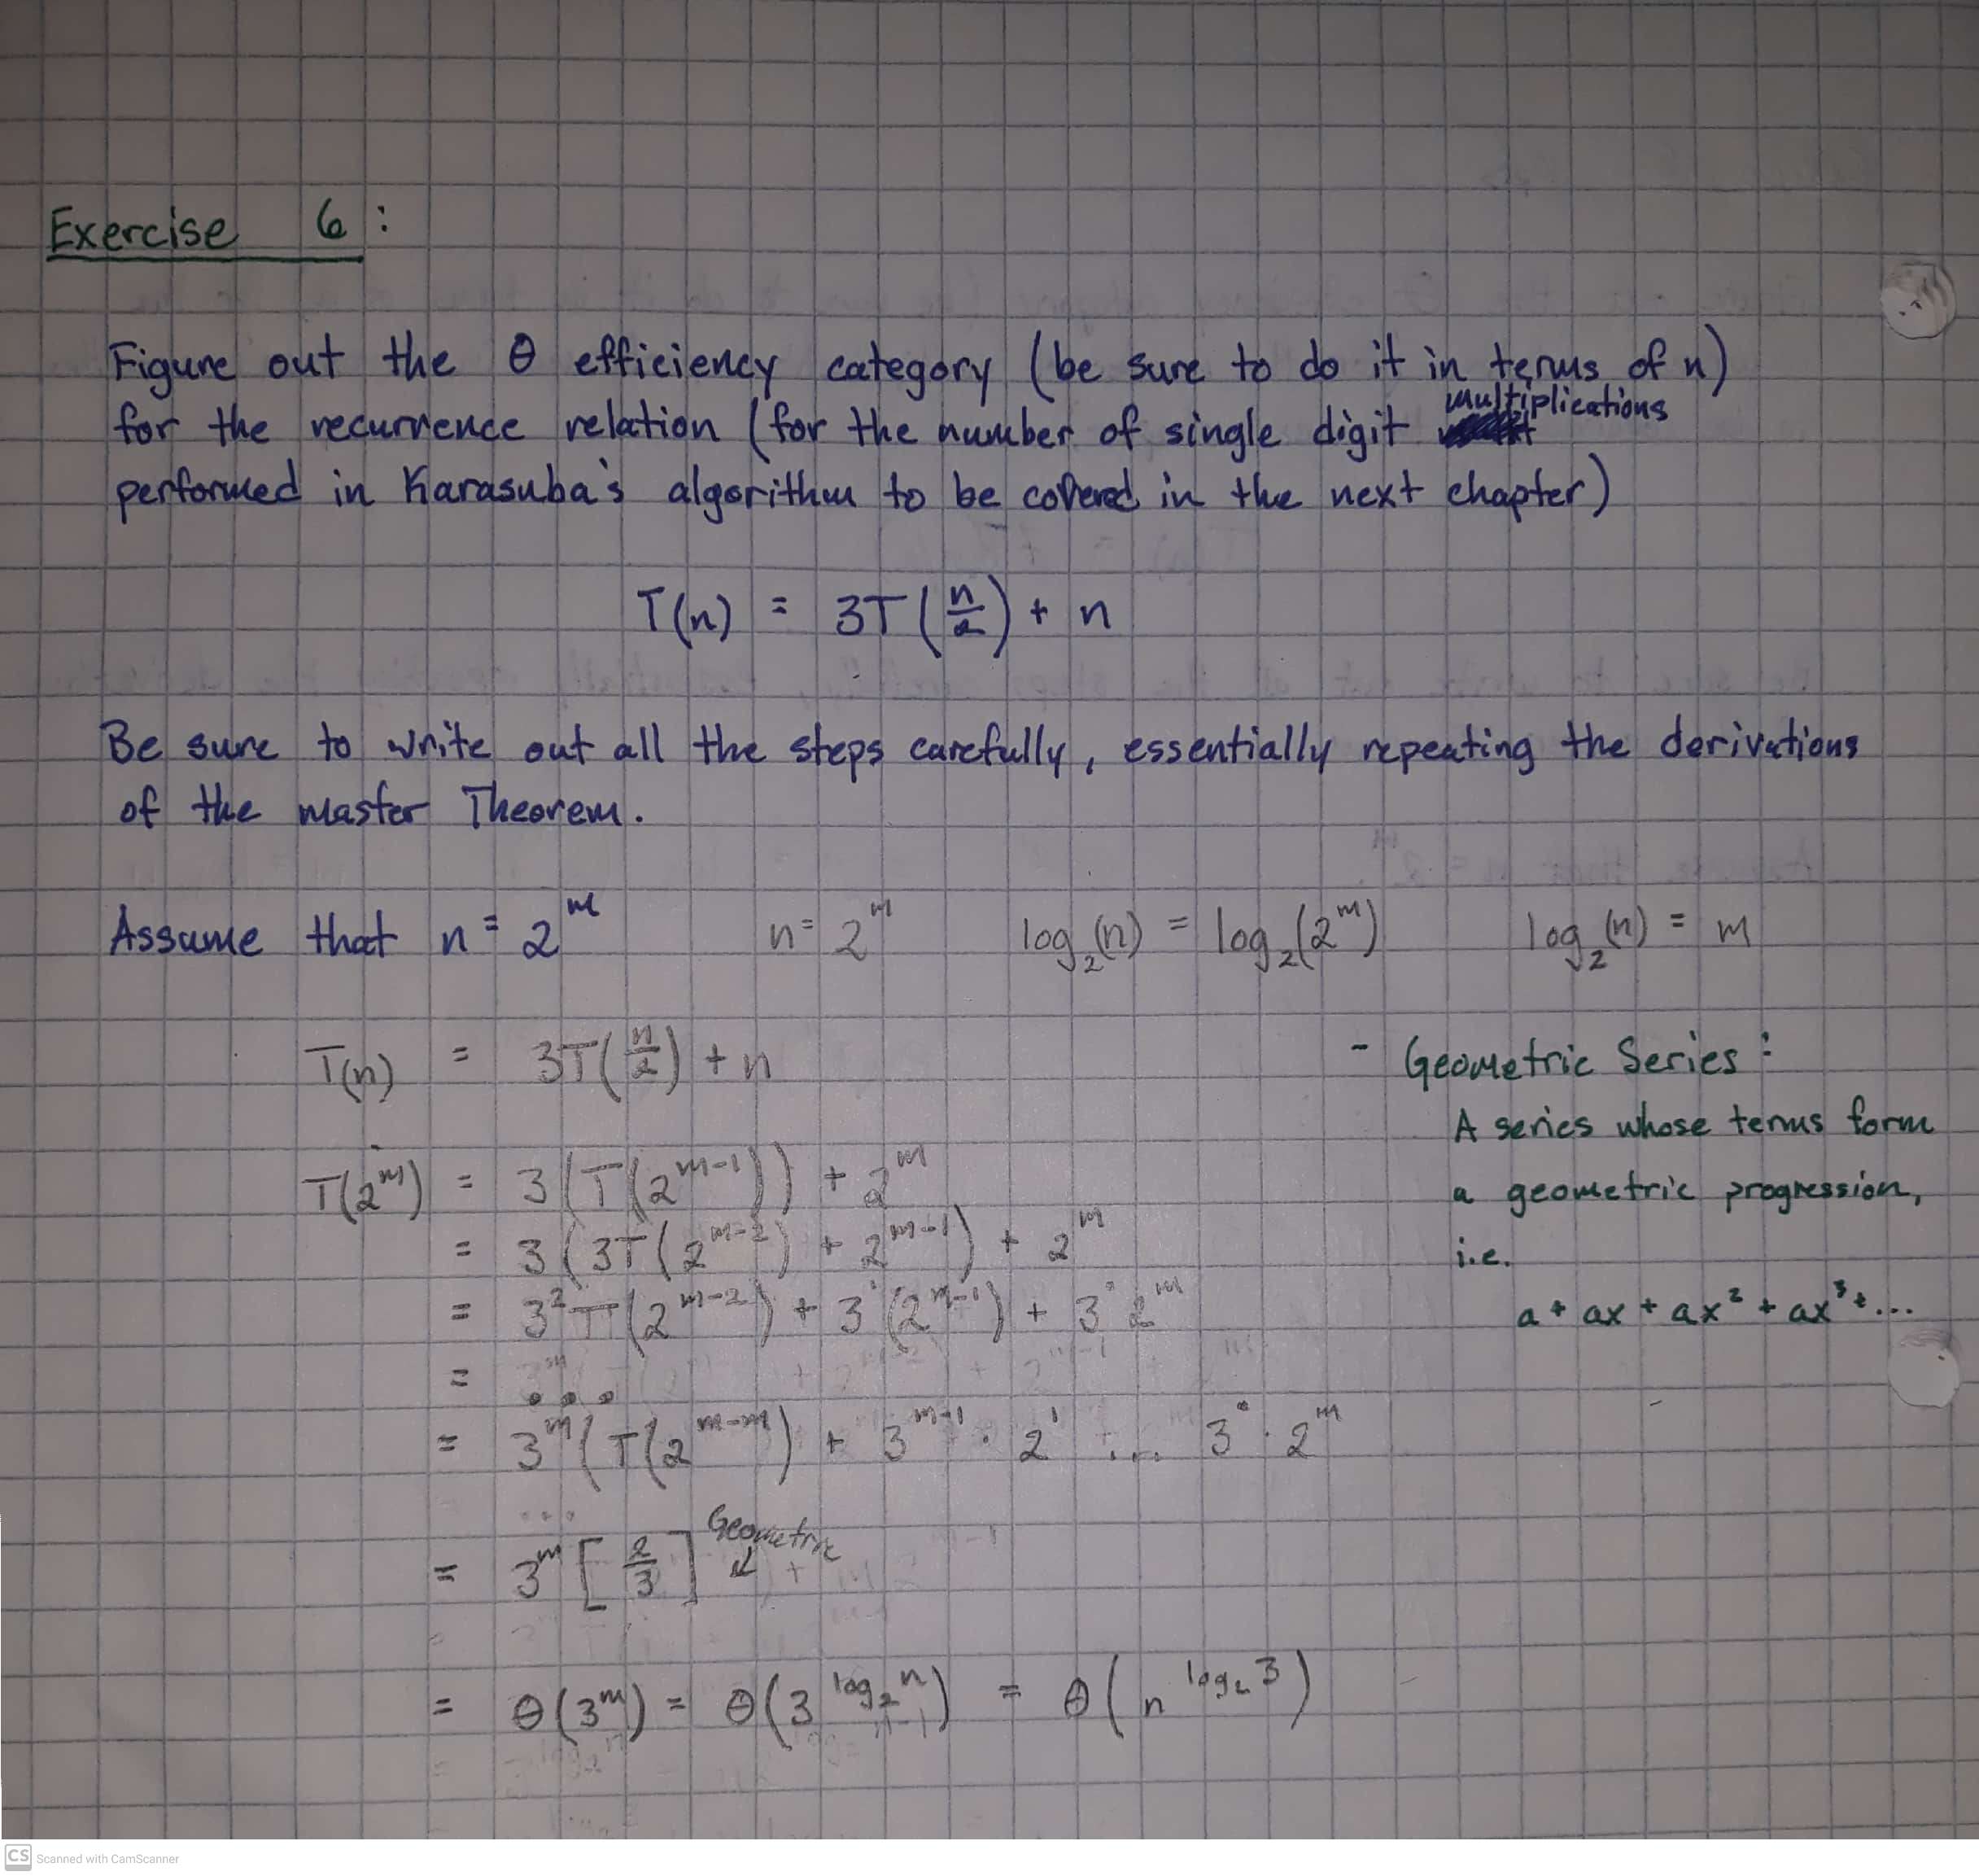 Exercise 6 :
Figure out the θ efficiency category (be sure to do it in terms of n)
for the recurrence relation (for the number of single digit multiplications
performed in Karasuba's algorithm to be covered in the next chapter)
T(n) = 3T(n/2) + n
Be sure to write out all the steps carefully, essentially repeating the derivations
of the master Theorem.
Assume that n = 2^m n = 2^m log_2(n) = log_2(2^m) log_2(n) = m
T(n) = 3T(n/2) + n
T(2^m) = 3(T(2^{m-1})) + 2^m
= 3(3T(2^{m-2}) + 2^{m-1}) + 2^m
= 3^2 T(2^{m-2}) + 3^1(2^{m-1}) + 3^0 2^m
= ...
= 3^m(T(2^{m-m}) + 3^{m-1} · 2^1 ... 3^0 · 2^m
...
= 3^m [2/3] Geometric ↙
= θ(3^m) = θ(3^{log_2 n}) = θ(n^{log_2 3})
- Geometric Series :
A series whose terms form
a geometric progression,
i.e.
a + ax + ax^2 + ax^3 + ...
CS Scanned with CamScanner